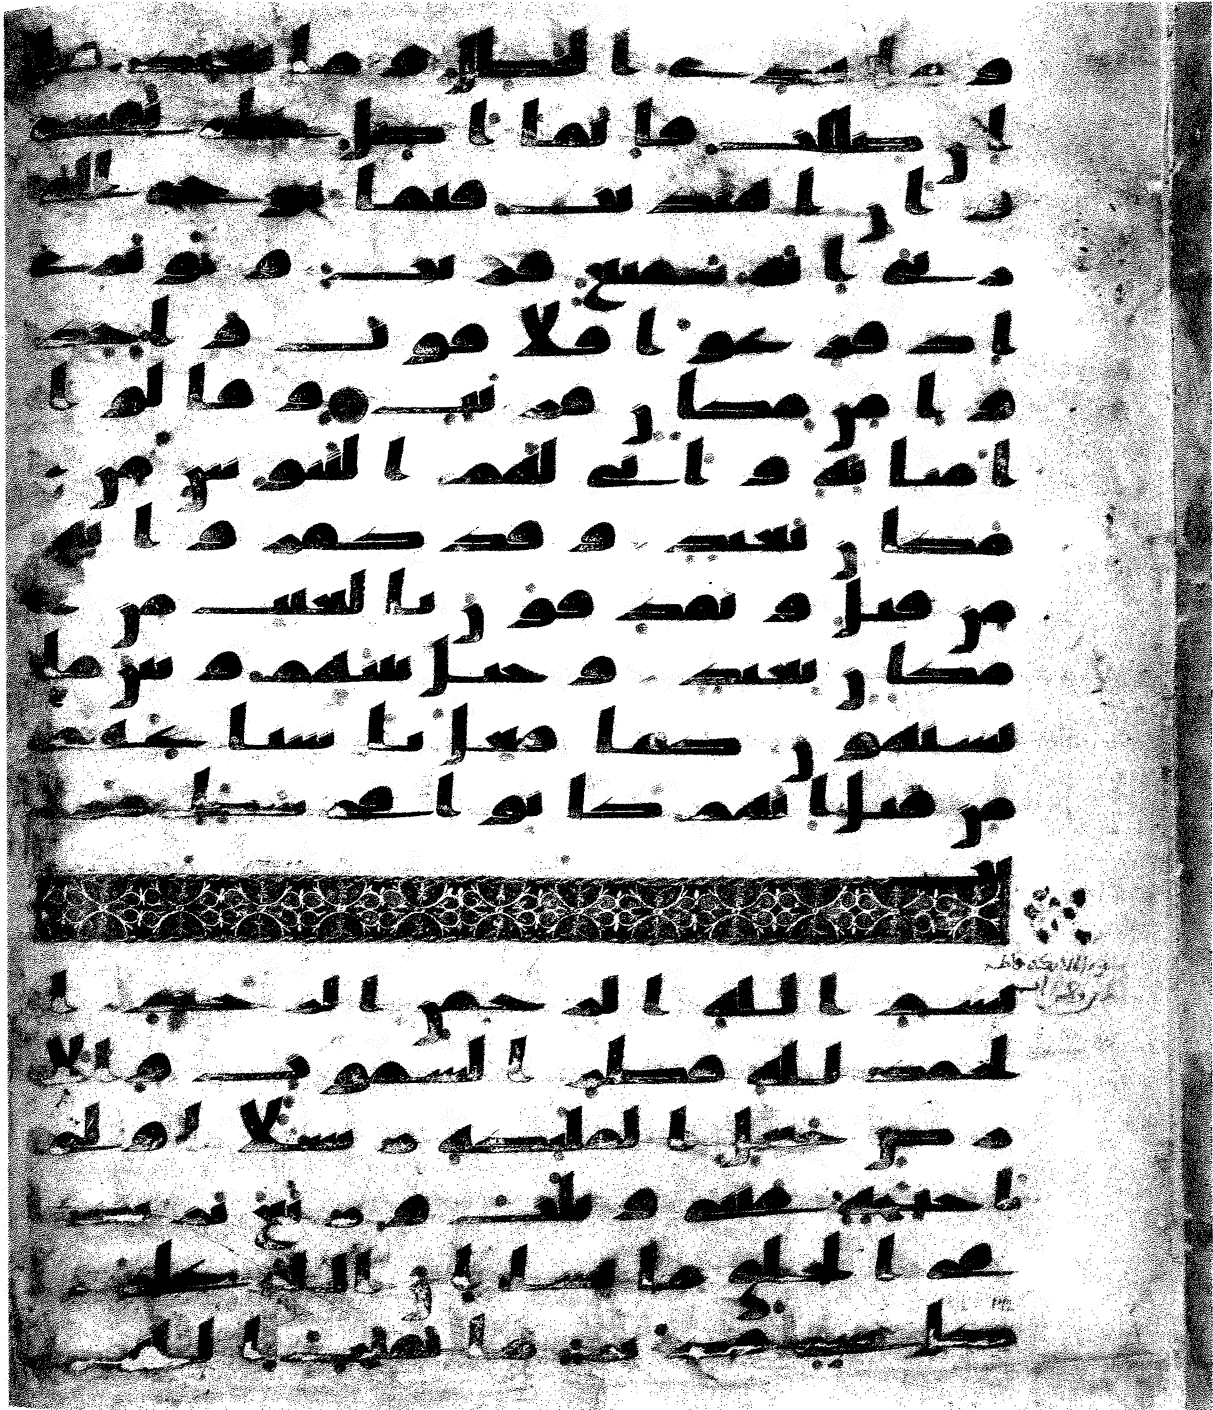 وما يبدئ البطل وما يعيد قل
ان ضللت فانما اضل على نفسي
وان اهتديت فبما يوحي الي
ربي انه سميع قريب ولو ترى
اذ فزعوا فلا فوت واخذ
وا من مكان قريب وقالوا
امنا به وانى لهم التنوش من
مكان بعيد وقد كفروا به
من قبل ويقذفون بالغيب من
مكان بعيد وحيل بينهم وبين ما
يشتهون كما فعل باشياعهم
من قبل انهم كانوا في شك مر
يب
بسم الله الرحمن الرحيم ا
لحمد لله فطر السموت والا
رض جاعل الملئكة رسلا اولي
اجنحة مثنى وثلث وربع يزيد
في الخلق ما يشا ان الله على
كل شي قدير ما يفتح الله